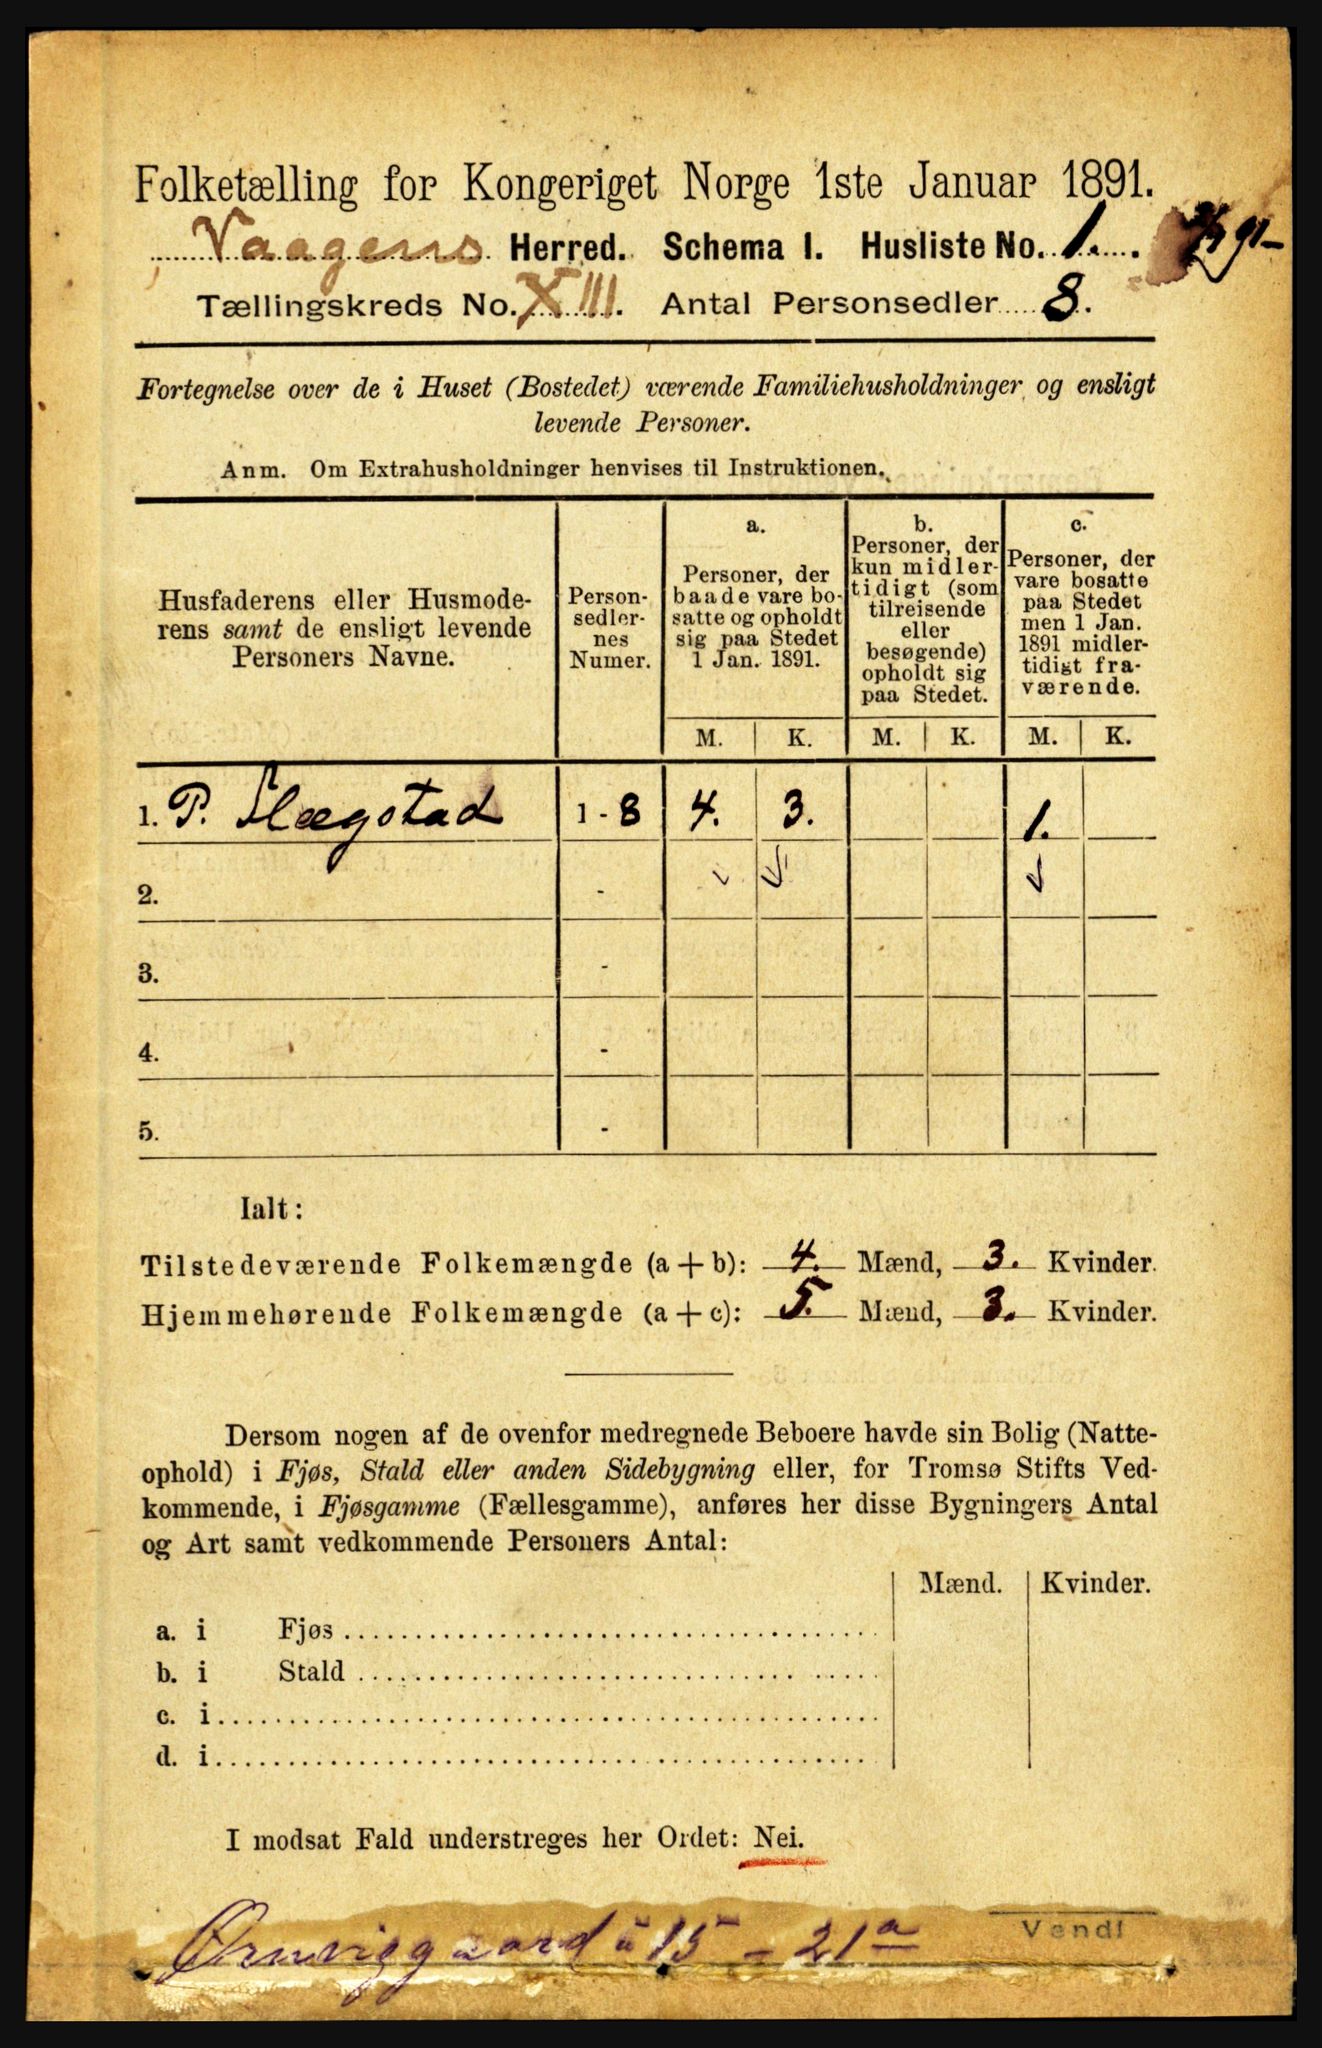 Folketælling for Kongeriget Norge 1ste Januar 1891.
Vaagens Herred. Schema I. Husliste No. 1.
Tællingskreds No. XIII. Antal Personsedler 8.
Fortegnelse over de i Huset (Bostedet) værende Familiehusholdninger og ensligt
levende Personer.
Anm. Om Extrahusholdninger henvises til Instruktionen.
Husfaderens eller Husmode-
rens samt de ensligt levende
Personers Navne.
Person-
sedler-
nes
Numer.
a.
Personer, der
baade vare bo-
satte og opholdt
sig paa Stedet
1 Jan. 1891.
b.
Personer, der
kun midler-
tidigt (som
tilreisende
eller
besøgende)
opholdt sig
paa Stedet.
c.
Personer, der
vare bosatte
paa Stedet
men 1 Jan.
1891 midler-
tidigt fra-
værende.
M. K. M. K. M. K.
1. P. Slægstad 1 - 8 4. 3. 1.
2. -
3. -
4. -
5. -
Ialt:
Tilstedeværende Folkemængde (a + b): 4. Mænd, 3. Kvinder.
Hjemmehørende Folkemængde (a + c): 5. Mænd, 3. Kvinder.
Dersom nogen af de ovenfor medregnede Beboere havde sin Bolig (Natte-
ophold) i Fjøs, Stald eller anden Sidebygning eller, for Tromsø Stifts Ved-
kommende, i Fjøsgamme (Fællesgamme), anføres her disse Bygningers Antal
og Art samt vedkommende Personers Antal:
Mænd. Kvinder.
a. i Fjøs
b. i Stald
c. i
d. i
I modsat Fald understreges her Ordet: Nei.
Vend!
Ørnviggaard 15 - 21a